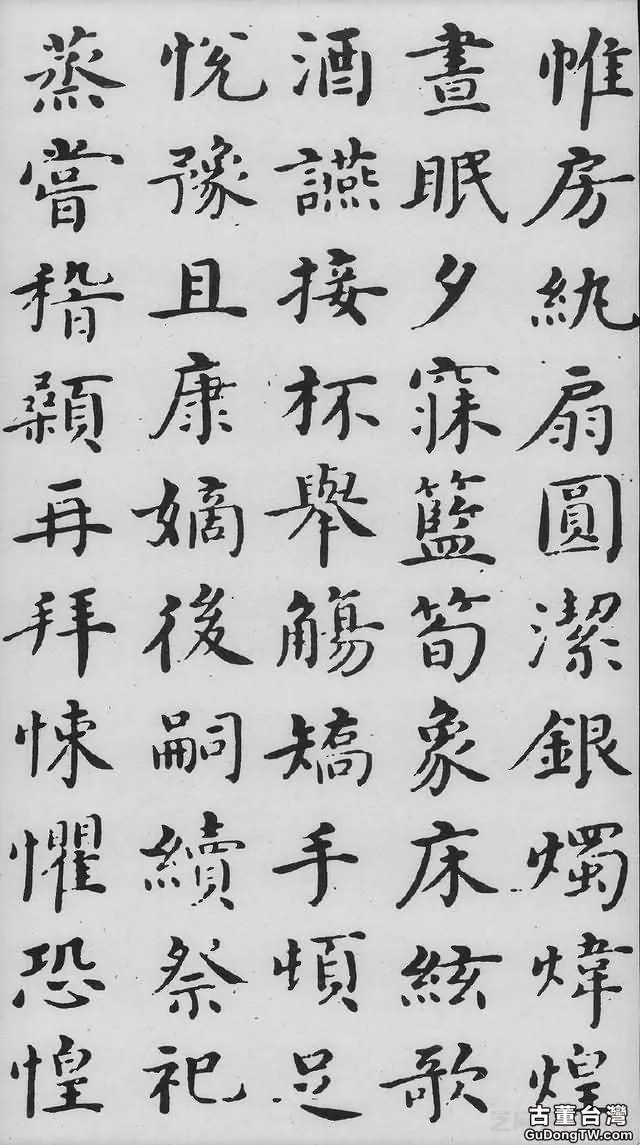 帷房紈扇圓潔銀燭煒煌
晝眠夕寐籃筍象床絃歌
酒讌接杯舉觴矯手頓足
悅豫且康嫡後嗣續祭祀
蒸嘗稽顙再拜悚懼恐惶
古董台灣
GuDongTW.com